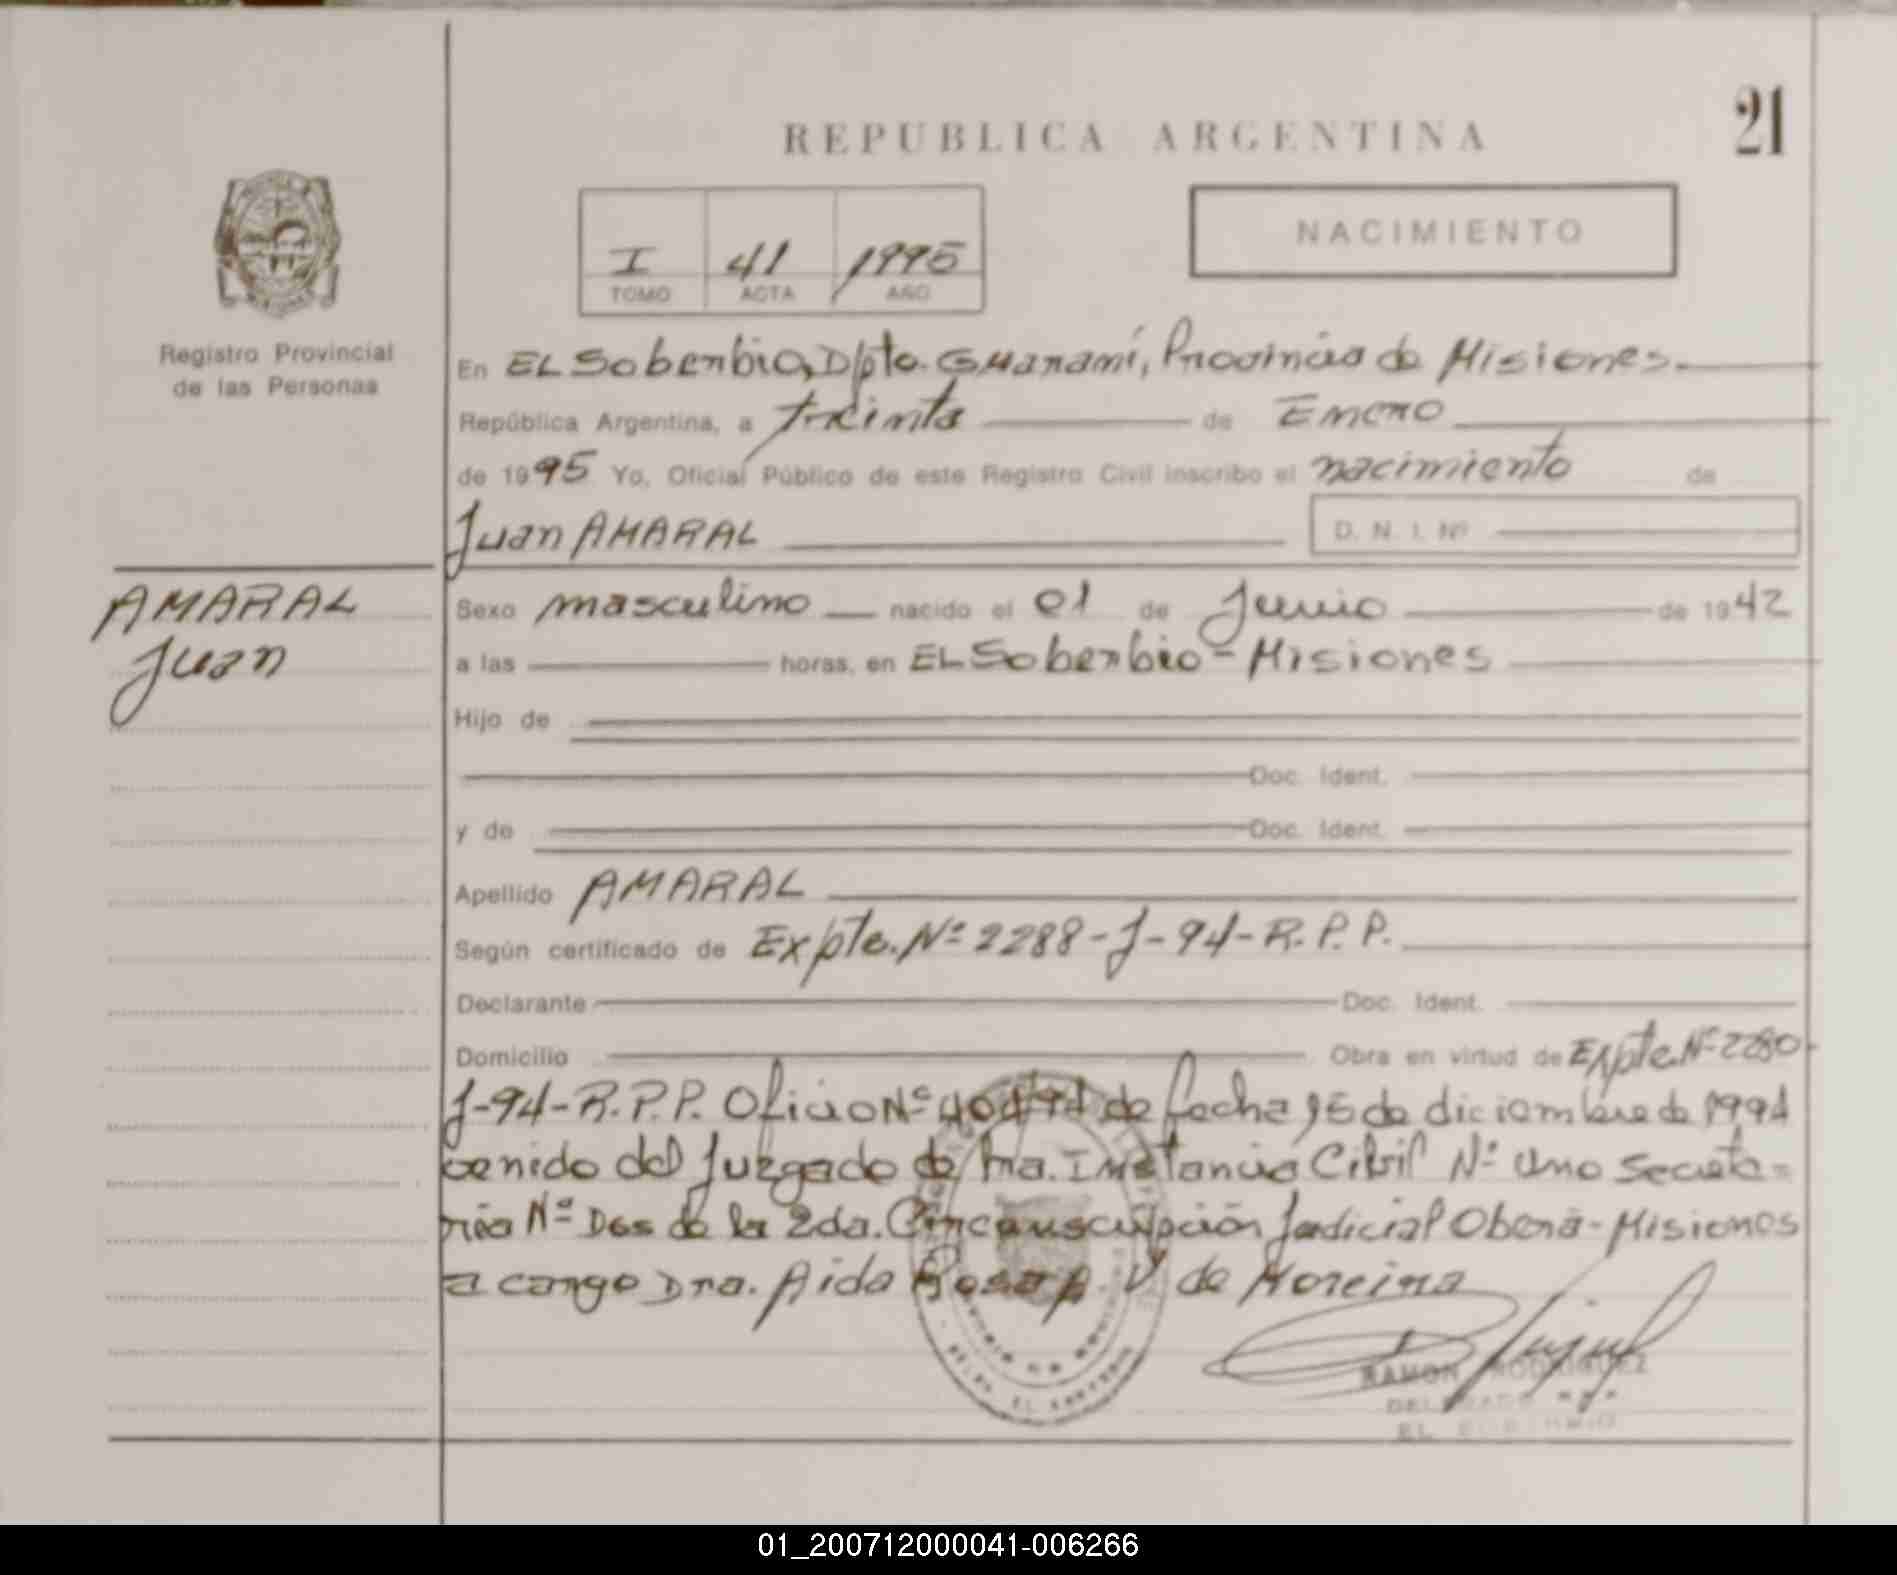 21
REPUBLICA ARGENTINA
NACIMIENTO
I 41 1995
TOMO ACTA AÑO
Registro Provincial
de las Personas
En EL Soberbio, Dpto. Guaraní, Provincia de Misiones.
República Argentina, a treinta de Enero
de 1995 Yo, Oficial Público de este Registro Civil inscribo el nacimiento de
Juan AMARAL D. N. I. Nº
AMARAL
Juan
Sexo masculino nacido el 01 de Junio de 1942
a las horas, en EL Soberbio - Misiones
Hijo de
Doc. Ident.
y de Doc. Ident.
Apellido AMARAL
Según certificado de Expte. Nº 2288-J-94-R.P.P.
Declarante Doc. Ident.
Domicilio Obra en virtud de Expte Nº 2280-
J-94-R.P.P. Oficio Nº de fecha 15 de diciembre de 1994
venido del Juzgado de Instancia Cibil Nº Uno Secreta-
ria Nº Dos de la 2da. Judicial Oberá - Misiones
a cargo Dra. Aida Rosa V de Moreira
RAMON RODRIGUEZ
EL
01_200712000041-006266